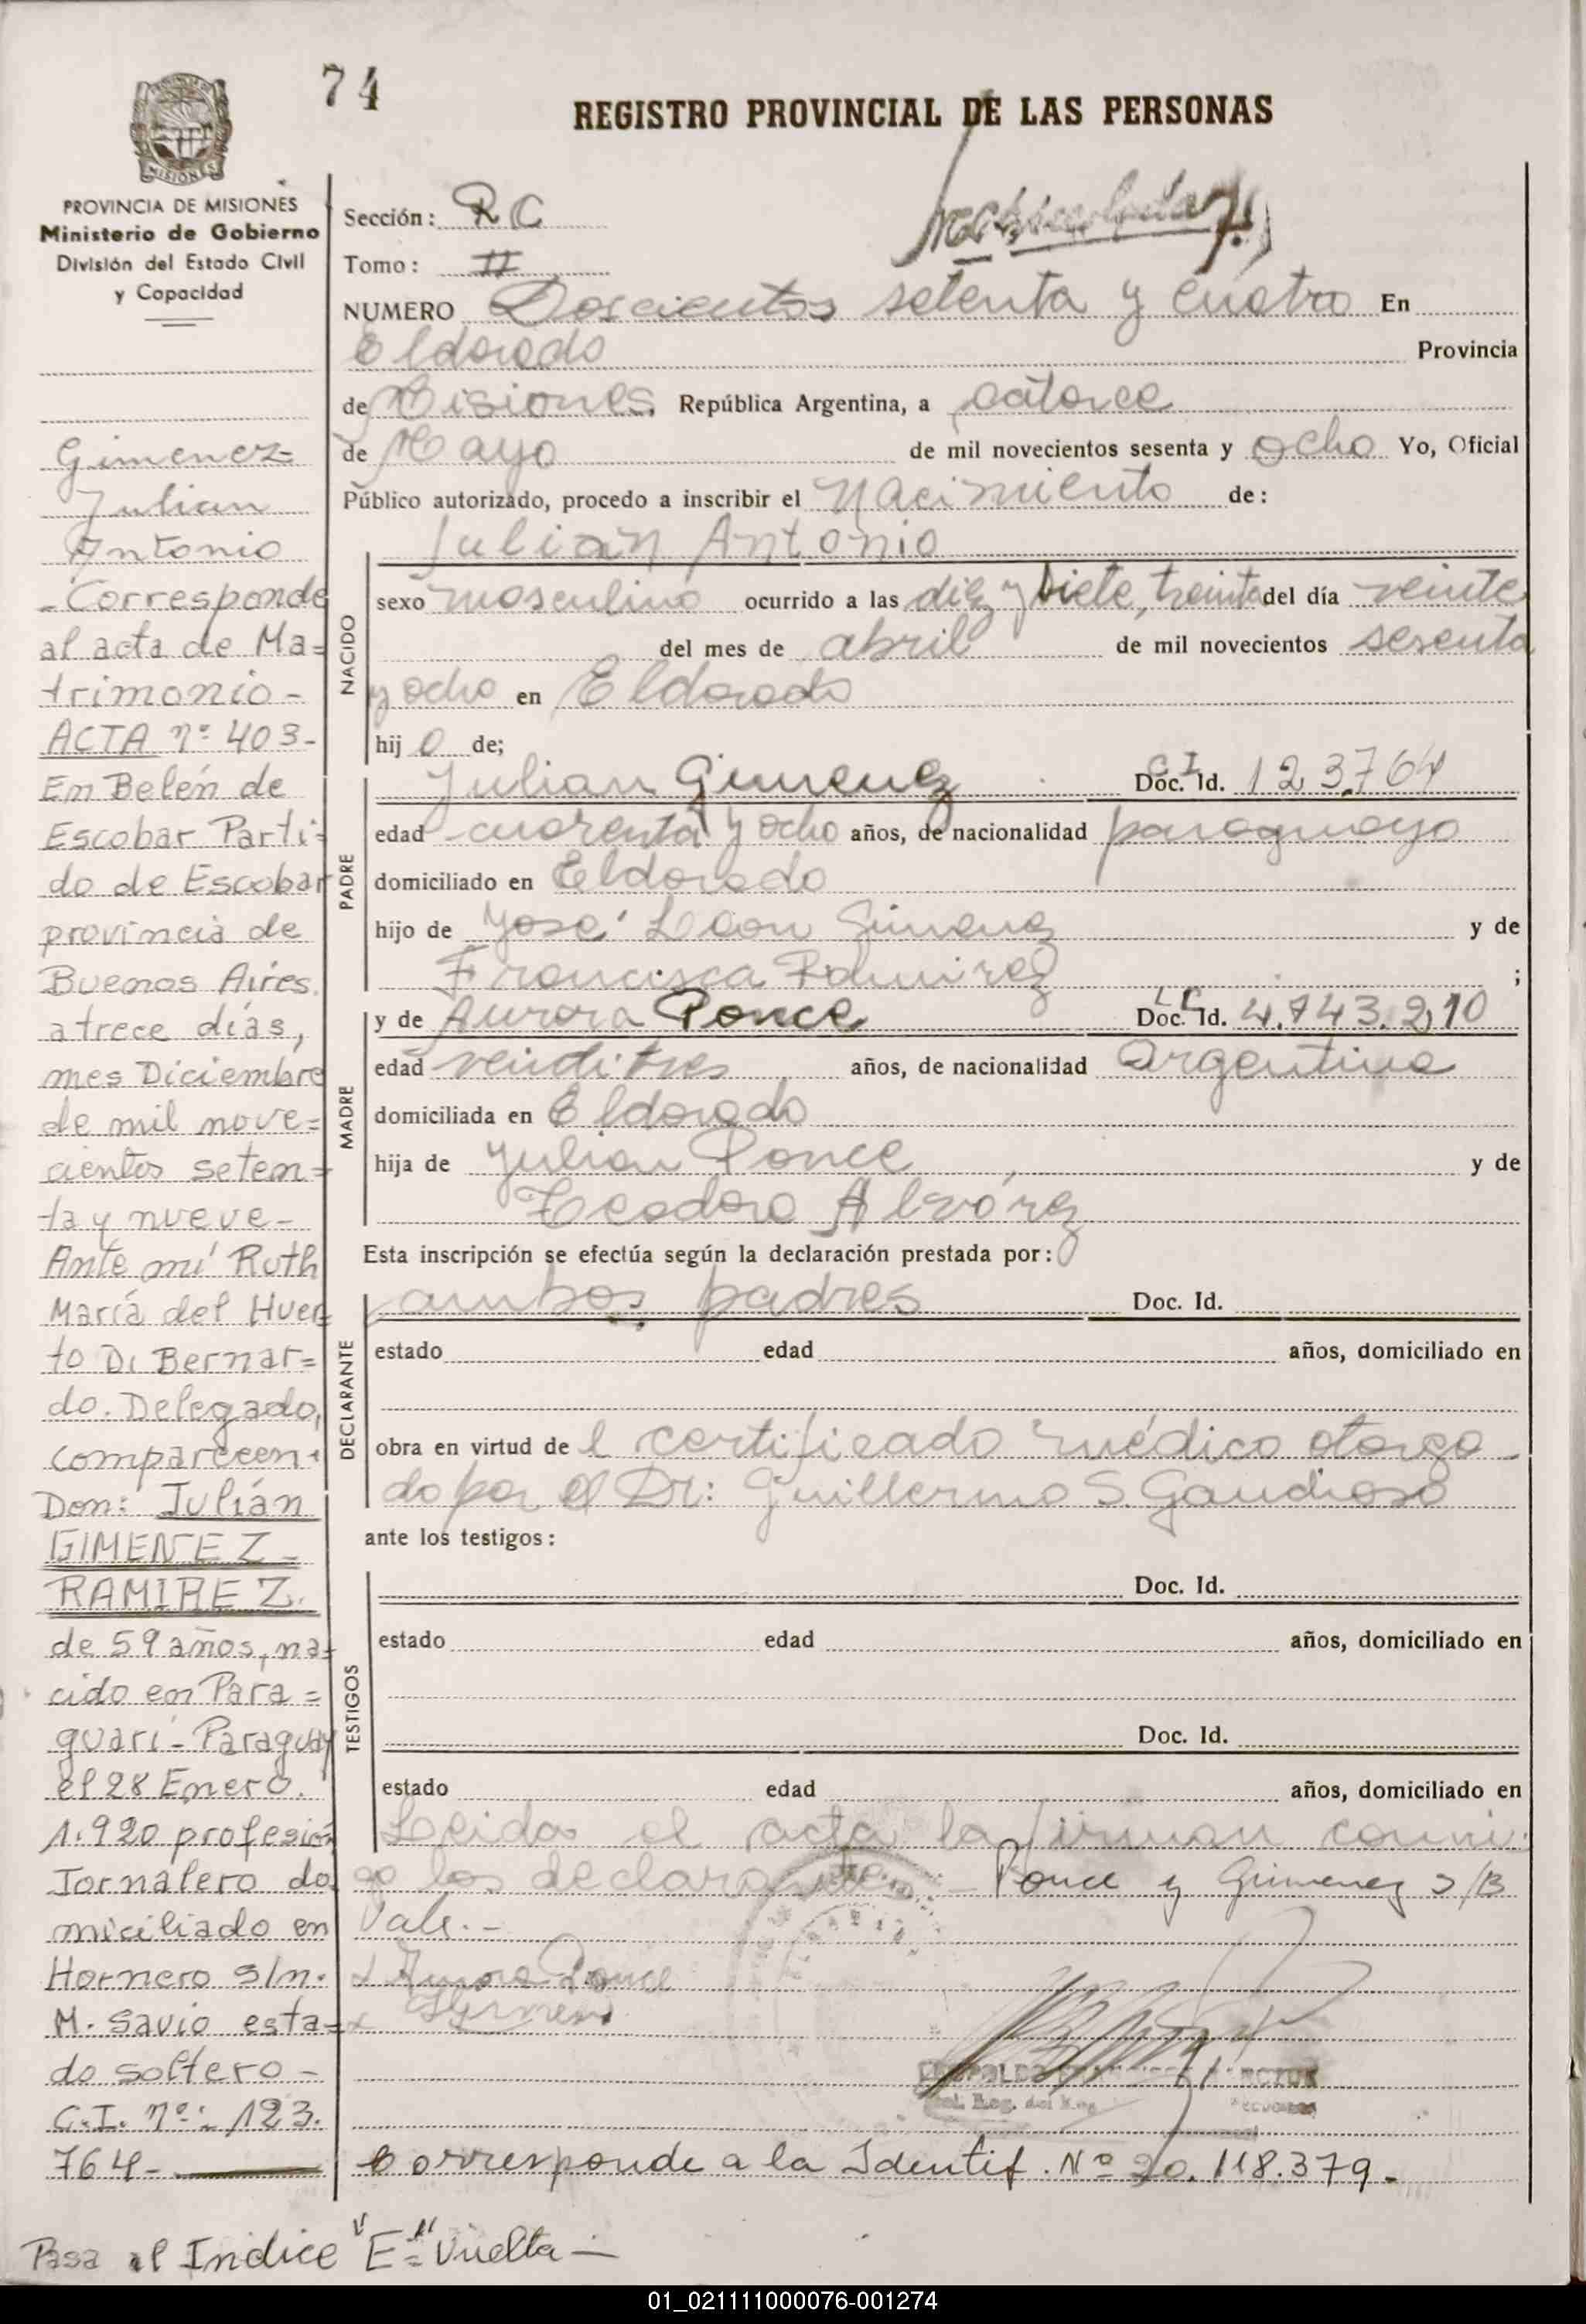 74
REGISTRO PROVINCIAL DE LAS PERSONAS
MISIONES
PROVINCIA DE MISIONES
Ministerio de Gobierno
División del Estado Civil
y Capacidad
Gimenez=
Julian
Antonio
- Corresponde
al acta de Ma=
trimonio -
ACTA nº 403-
En Belén de
Escobar Parti=
do de Escobar
provincia de
Buenos Aires.
a trece días,
mes Diciembre
de mil nove=
cientos seten=
ta y nueve-
Ante mí Ruth
María del Huer=
to Di Bernar=
do. Delegado,
comparecen:
Don: Julián
GIMENEZ-
RAMIREZ.
de 59 años, na=
cido en Para=
guarí - Paraguay
el 28 Enero.
1.920 profesión
Jornalero do
miciliado en
Hornero s/n.
M. Savio esta=
do soltero -
C.I. nº: 123.
764-
Sección: RC
Tomo: II
NUMERO Doscientos setenta y cuatro En
Eldorado Provincia
de Misiones, República Argentina, a catorce
de Mayo de mil novecientos sesenta y ocho Yo, Oficial
Público autorizado, procedo a inscribir el Nacimiento de:
Julian Antonio
NACIDO
sexo masculino ocurrido a las diez y siete, treinta del día veinte
del mes de abril de mil novecientos sesenta
y ocho en Eldorado
hijo de;
PADRE
Julian Gimenez C I Doc. Id. 123.764
edad cuarenta y ocho años, de nacionalidad paraguayo
domiciliado en Eldorado
hijo de José Leon Gimenez y de
Francisca Ramirez ;
MADRE
y de Aurora Ponce L C Doc. Id. 4.743.210
edad veinditres años, de nacionalidad Argentina
domiciliada en Eldorado
hija de Julian Ponce y de
Teodora Alvárez
Esta inscripción se efectúa según la declaración prestada por:
DECLARANTE
ambos padres Doc. Id.
estado edad años, domiciliado en
obra en virtud de l certificado médico otorga-
do por el Dr: Guillermo S. Gaudioso
ante los testigos:
TESTIGOS
Doc. Id.
estado edad años, domiciliado en
Doc. Id.
estado edad años, domiciliado en
Leida el acta la firman conmi-
go los declarantes - Ponce y Gimenez S/B
Vale.-
x Aurora Ponce
x Gimenez
Corresponde a la Identif. Nº 20.118.379.-
Pasa al Indice "E"= Vuelta -
01_021111000076-001274